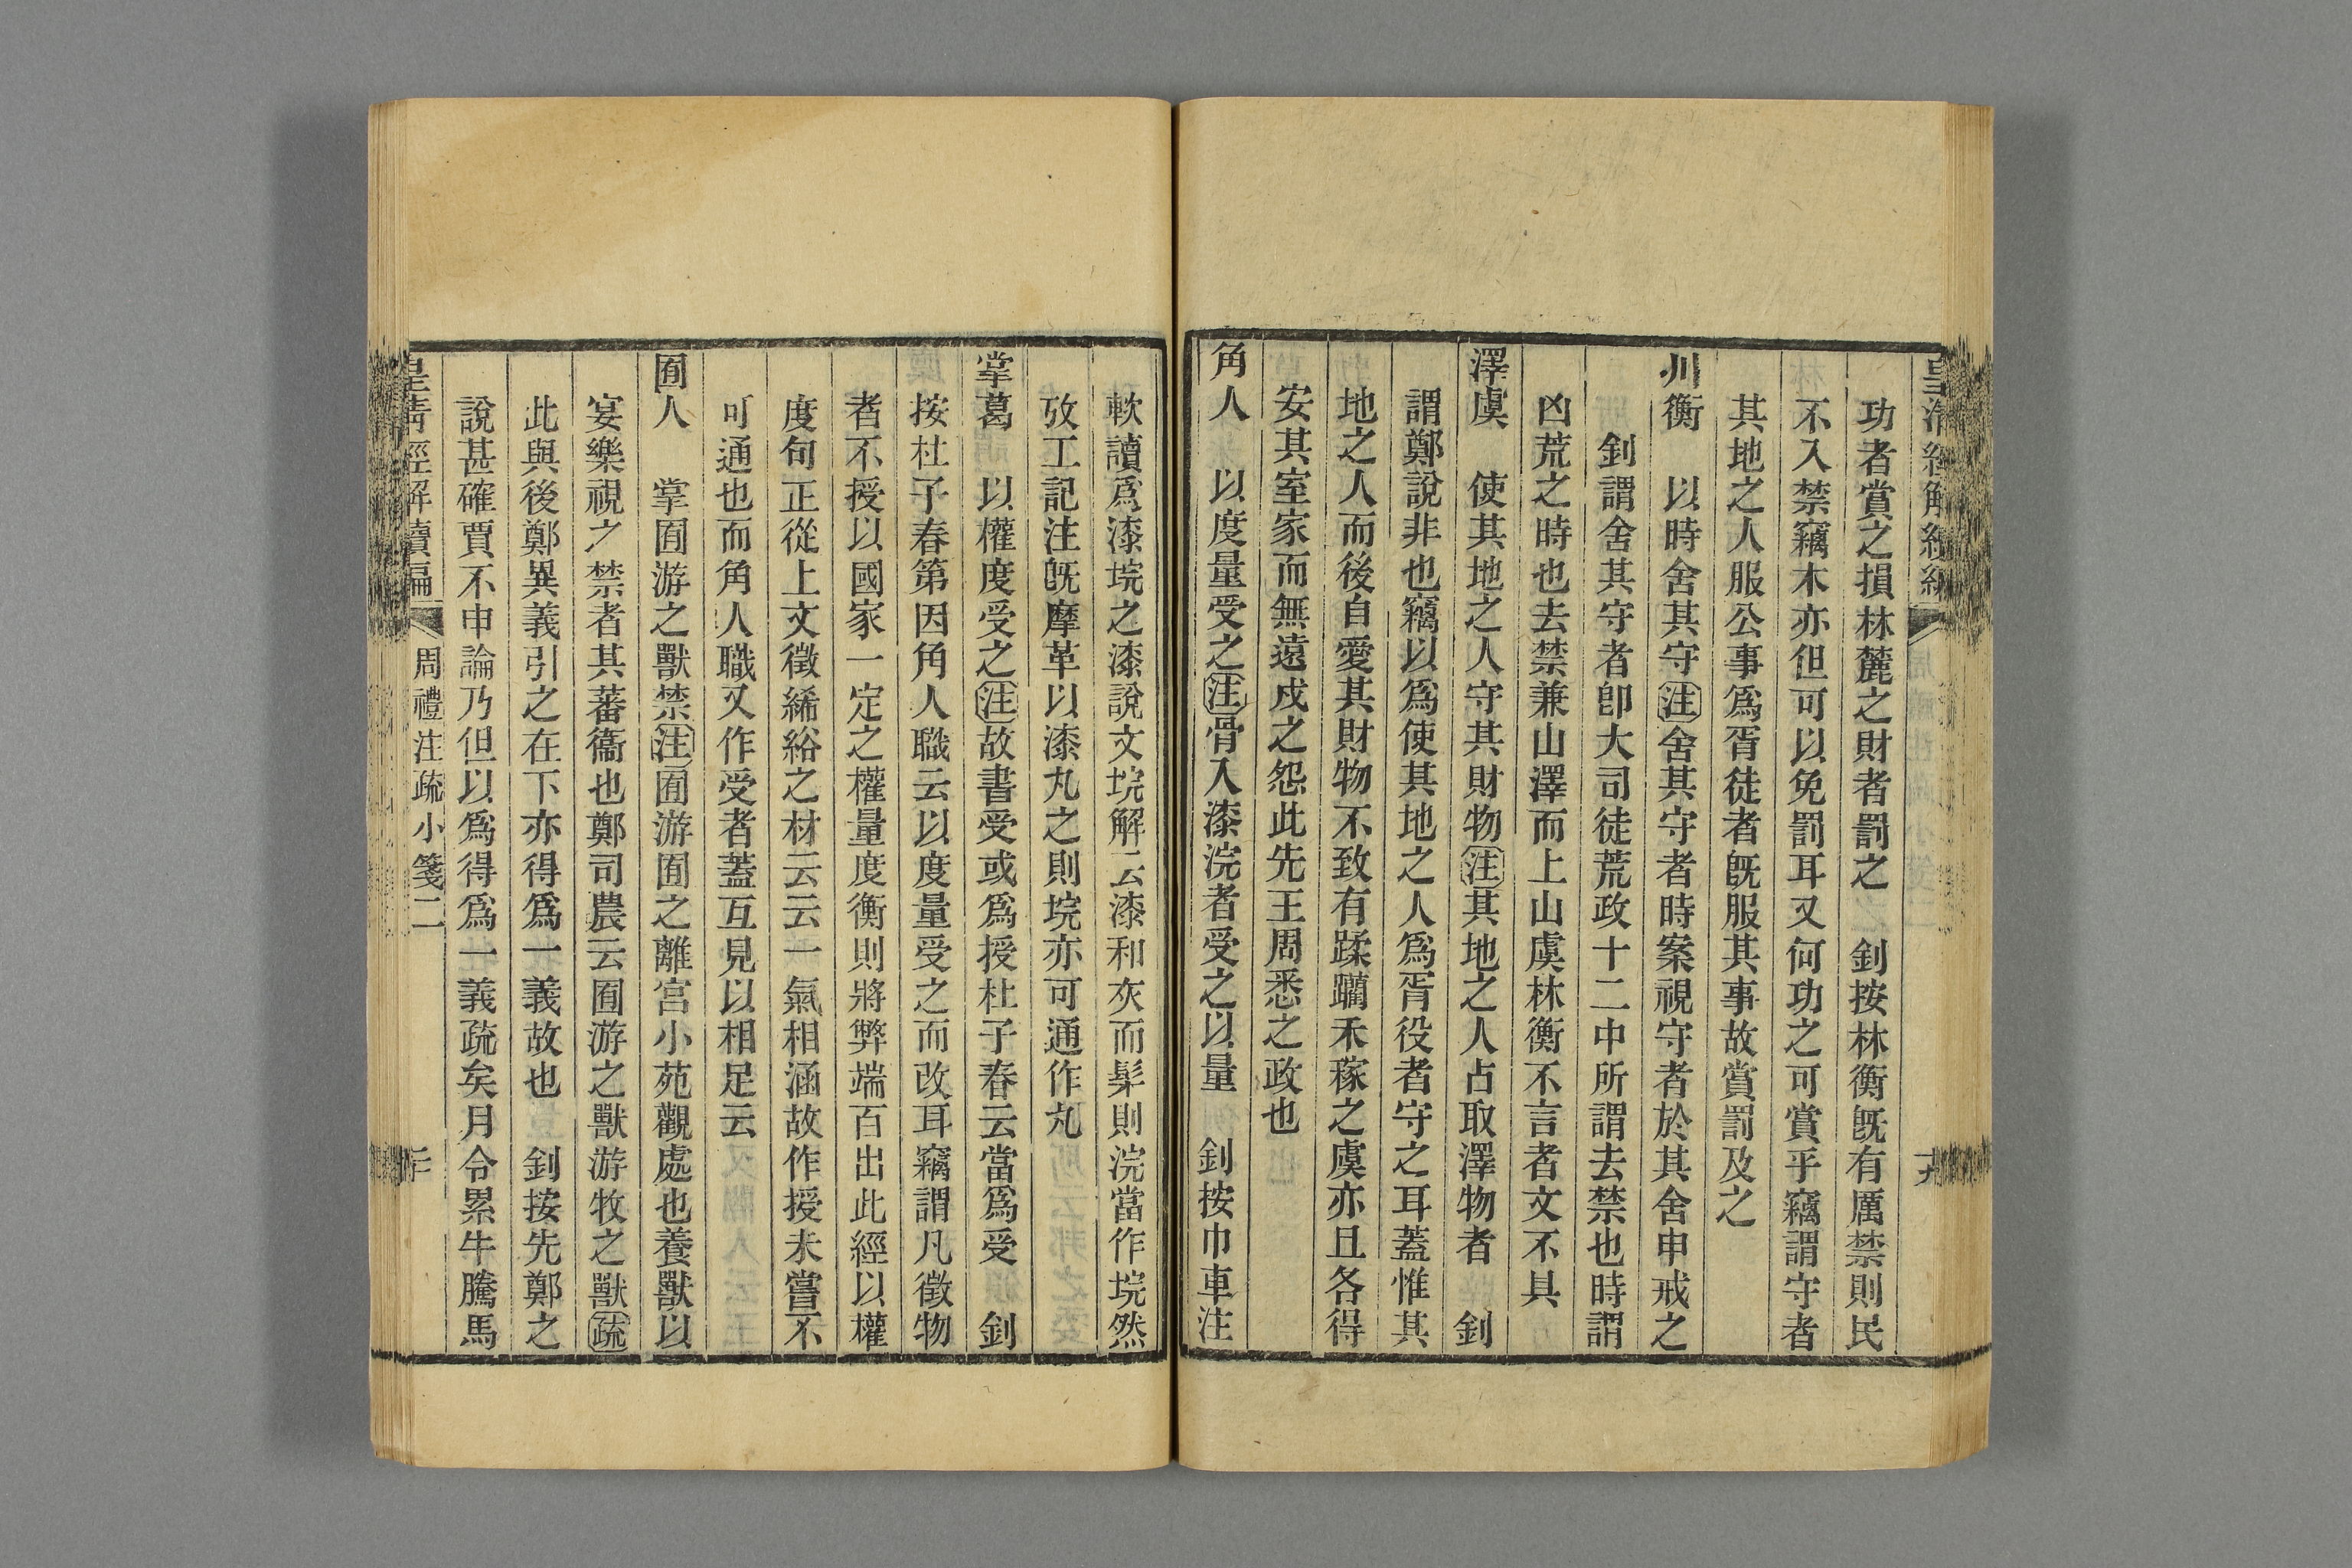 功者賞之損林麓之財者罰之　釗按林衡旣有厲禁則民
不入禁竊木亦但可以免罰耳又何功之可賞乎竊謂守者
其地之人服公事爲胥徒者旣服其事故賞罰及之
川衡　以時舍其守注舍其守者時案視守者於其舍申戒之
釗謂舍其守者卽大司徒荒政十二中所謂去禁也時謂
凶荒之時也去禁兼山澤而上山虞林衡不言者文不具
澤虞　使其地之人守其財物注其地之人占取澤物者　釗
謂鄭說非也竊以爲使其地之人爲胥役者守之耳蓋惟其
地之人而後自愛其財物不致有蹂躪禾稼之虞亦且各得
安其室家而無遠戍之怨此先王周悉之政也
角人　以度量受之注骨入漆浣者受之以量　釗按巾車注
軟讀爲漆垸之漆說文垸解云漆和灰而髹則浣當作垸然
攷工記注旣摩革以漆丸之則垸亦可通作丸
掌葛　以權度受之注故書受或爲授杜子春云當爲受　釗
按杜子春第因角人職云以度量受之而改耳竊謂凡徵物
者不授以國家一定之權量度衡則將弊端百出此經以權
度句正從上文徵絺綌之材云云一氣相涵故作授未嘗不
可通也而角人職又作受者蓋互見以相足云
囿人　掌囿游之獸禁注囿游囿之離宮小苑觀處也養獸以
宴樂視之禁者其蕃衞也鄭司農云囿游之獸游牧之獸疏
此與後鄭異義引之在下亦得爲一義故也　釗按先鄭之
說甚確賈不申論乃但以爲得爲一義疏矣月令累牛騰馬
皇清經解續編　周禮注疏小箋二